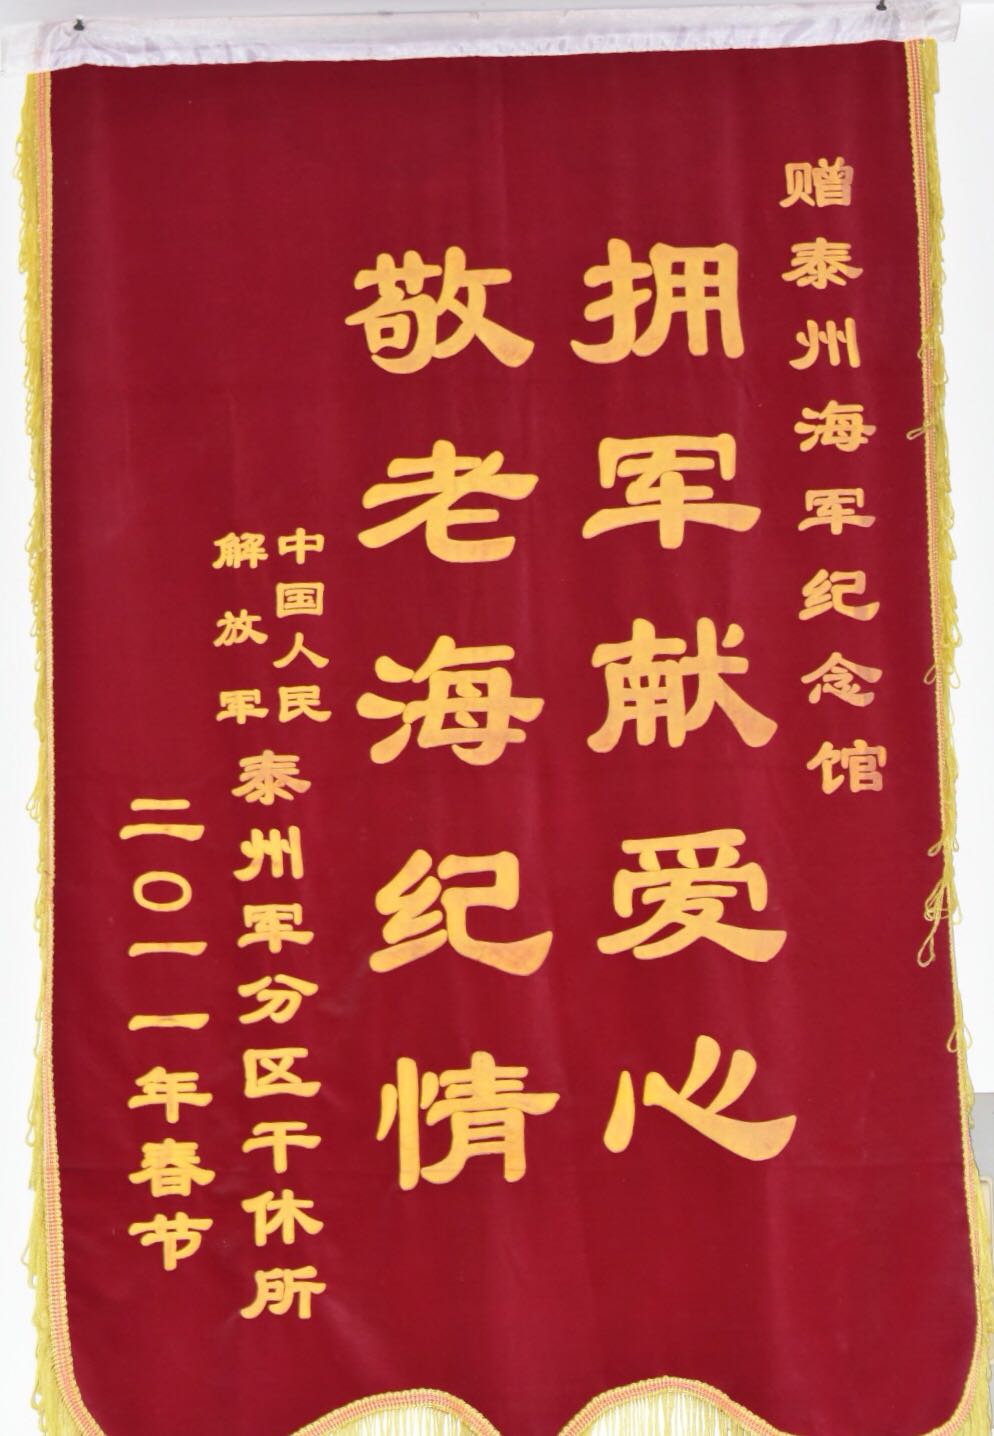 赠泰州海军纪念馆
拥军献爱心
敬老海纪情
中国人民
解放军
泰州军分区干休所
二〇一一年春节